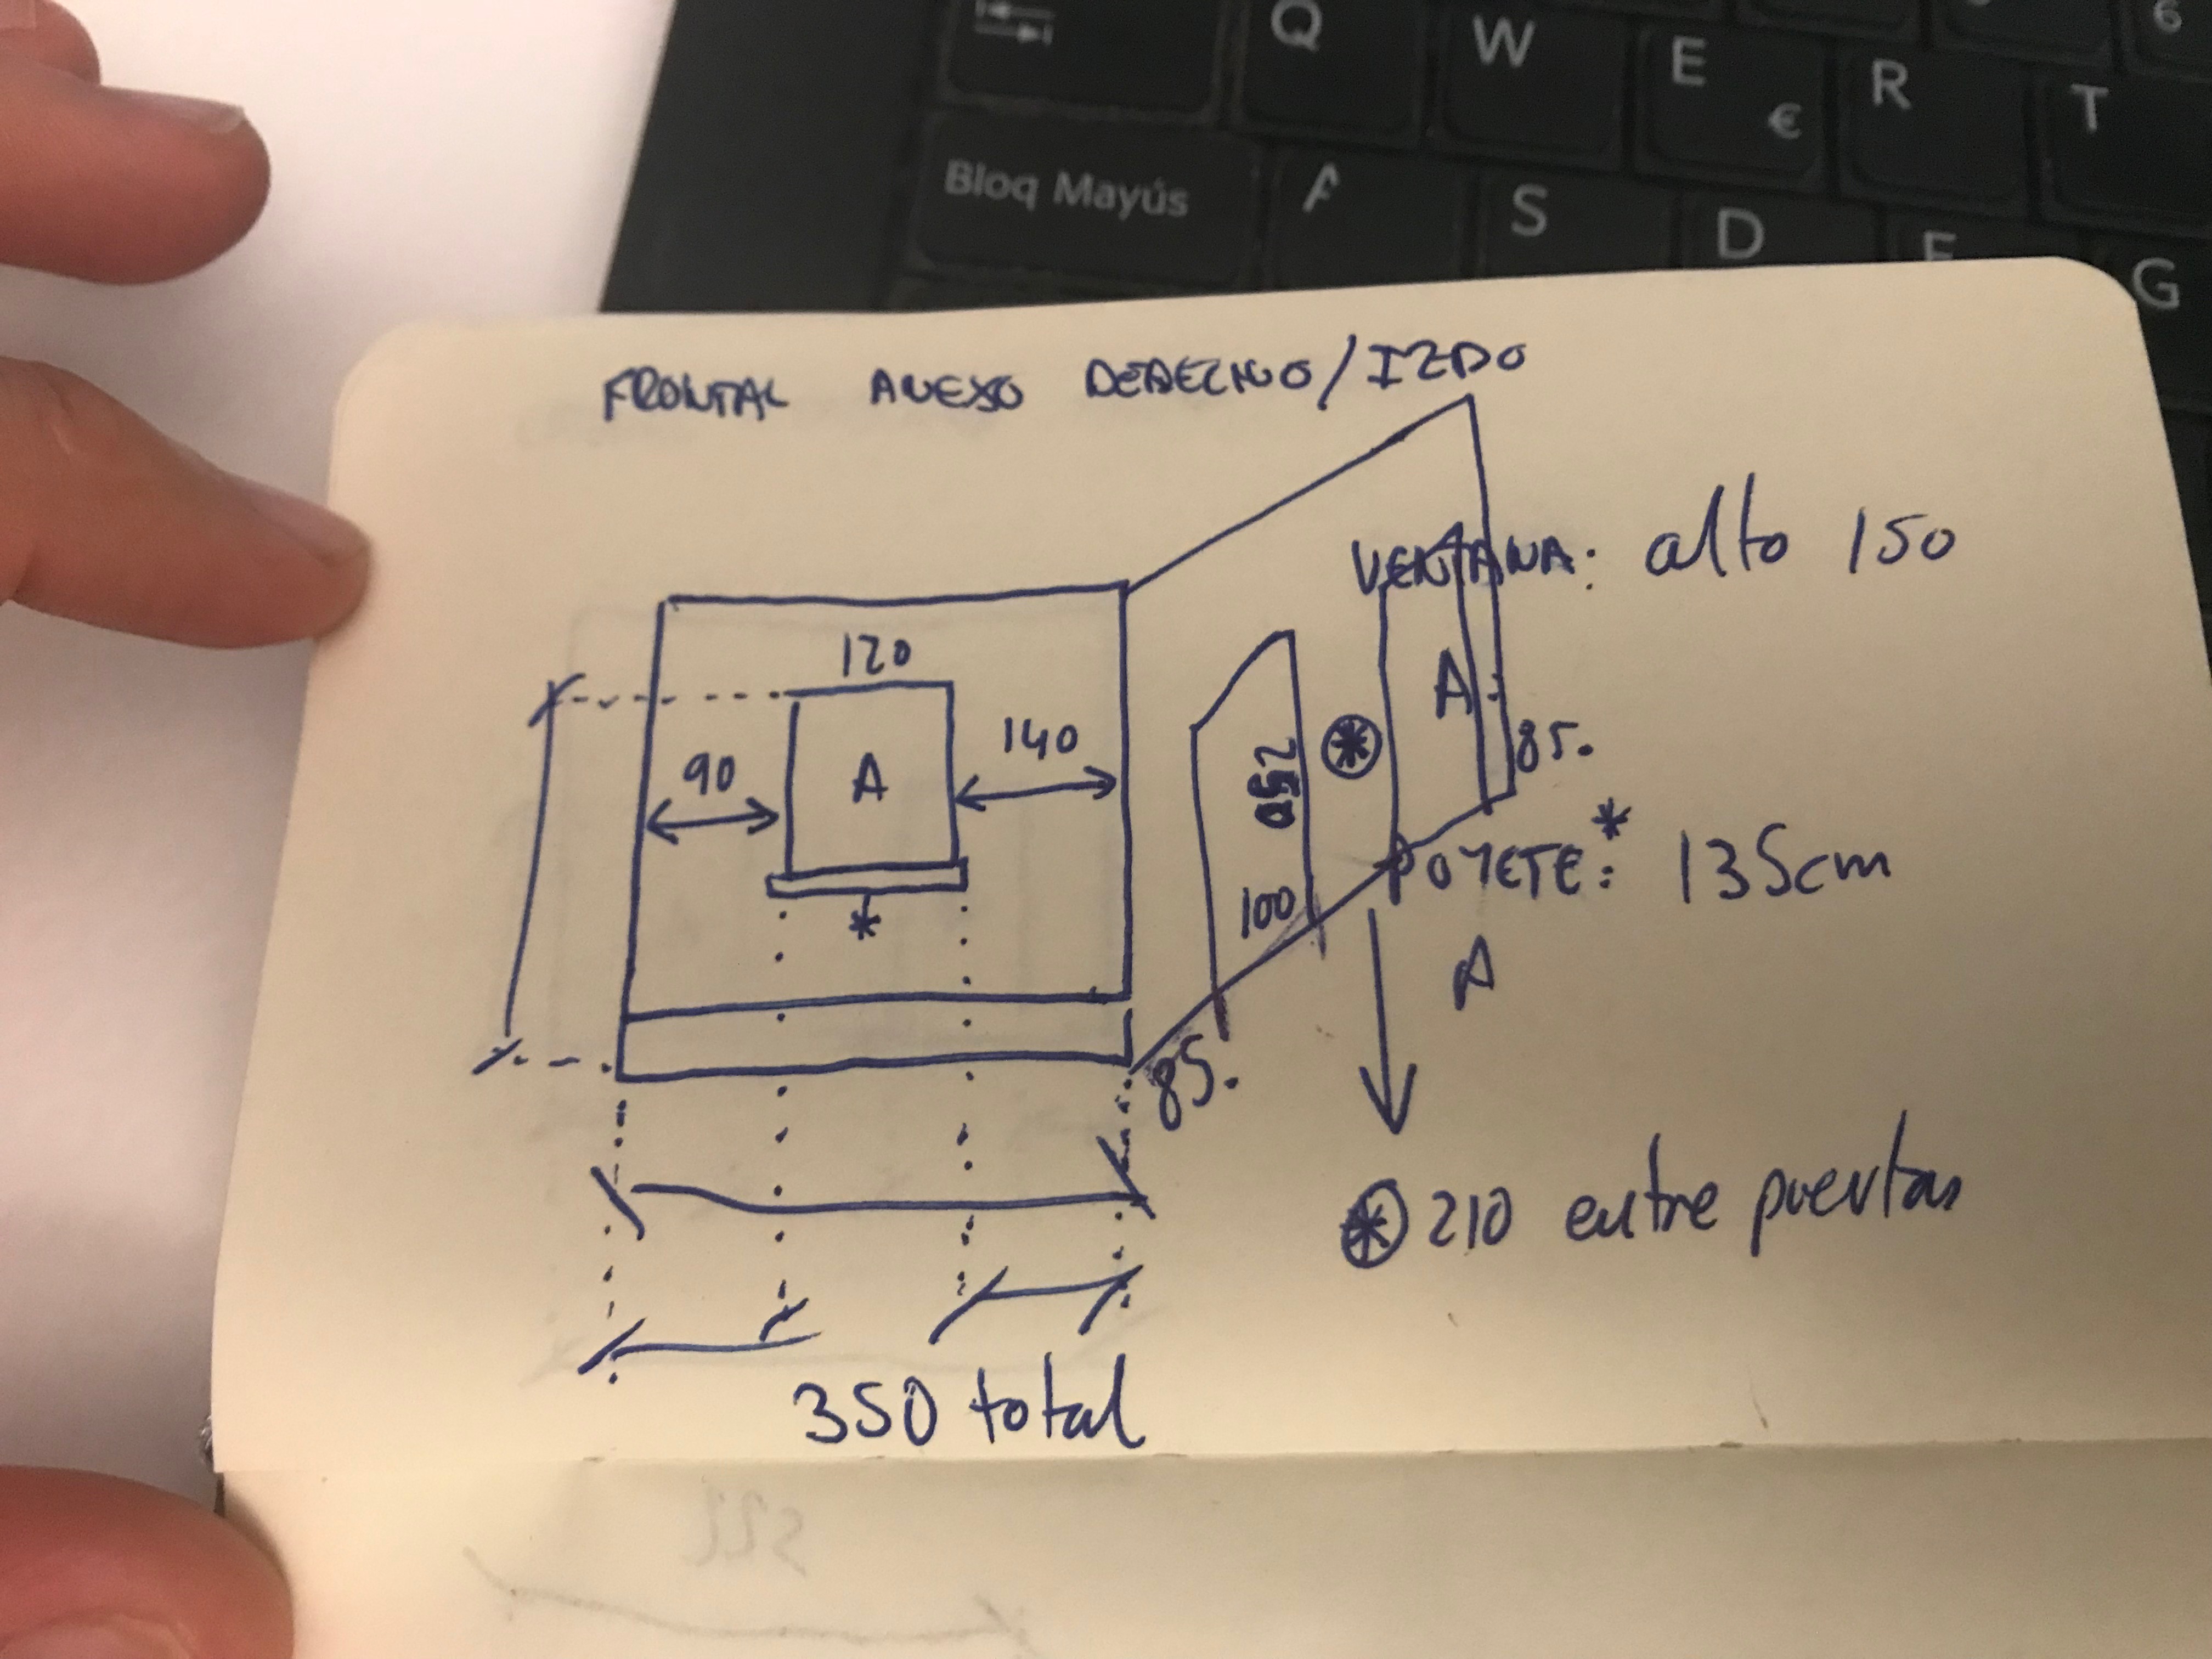 Q W E € R T 6
Bloq Mayús A S D F G
FRONTAL ANEXO DERECHO/IZDO
VENTANA: alto 150
120
90 A 140
A
85.
100
POYETE:* 135cm
*
A
85.
⊛ 210 entre puertas
350 total